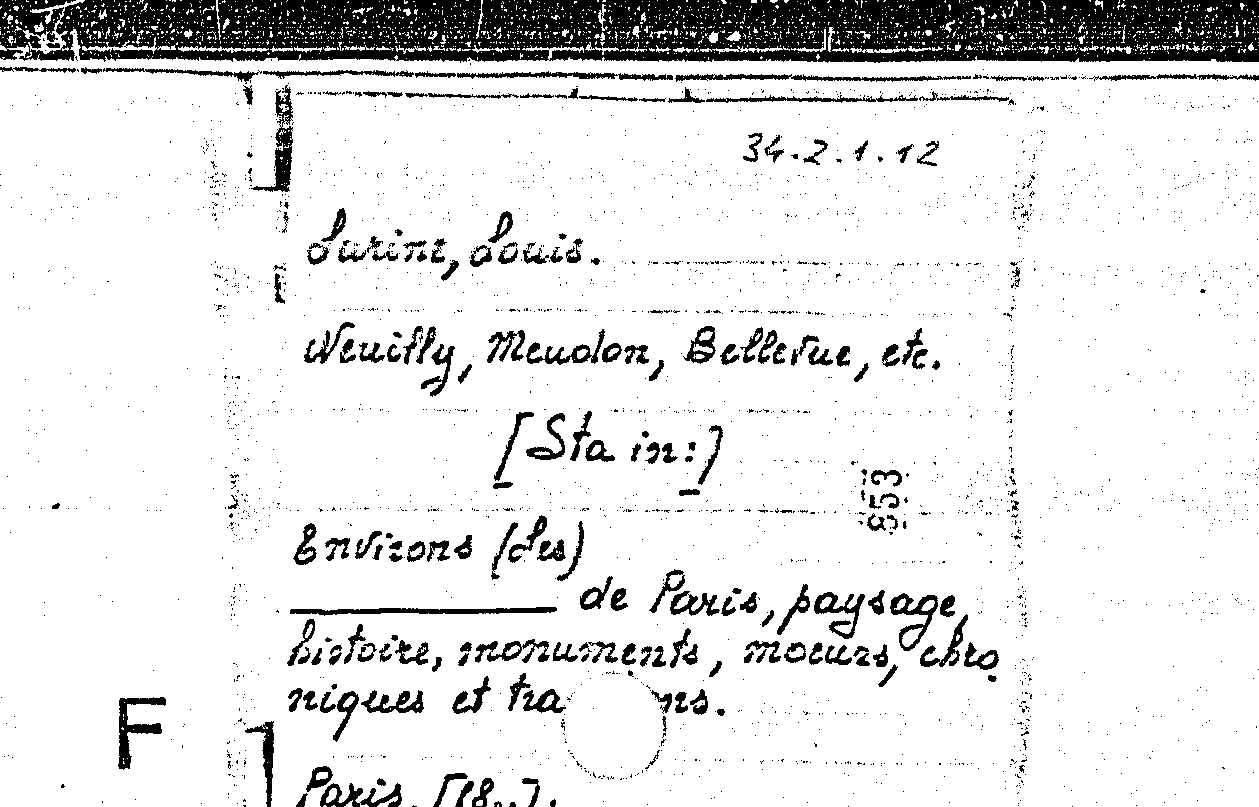 34.2.1.12
Lurine, Louis.
Neuilly, Meudon, Bellevue, etc.
[Sta in:]
853
Environs (Les)
de Paris, paysage,
histoire, monuments, moeurs, chro
niques et tra ns.
F
Paris, [18..].